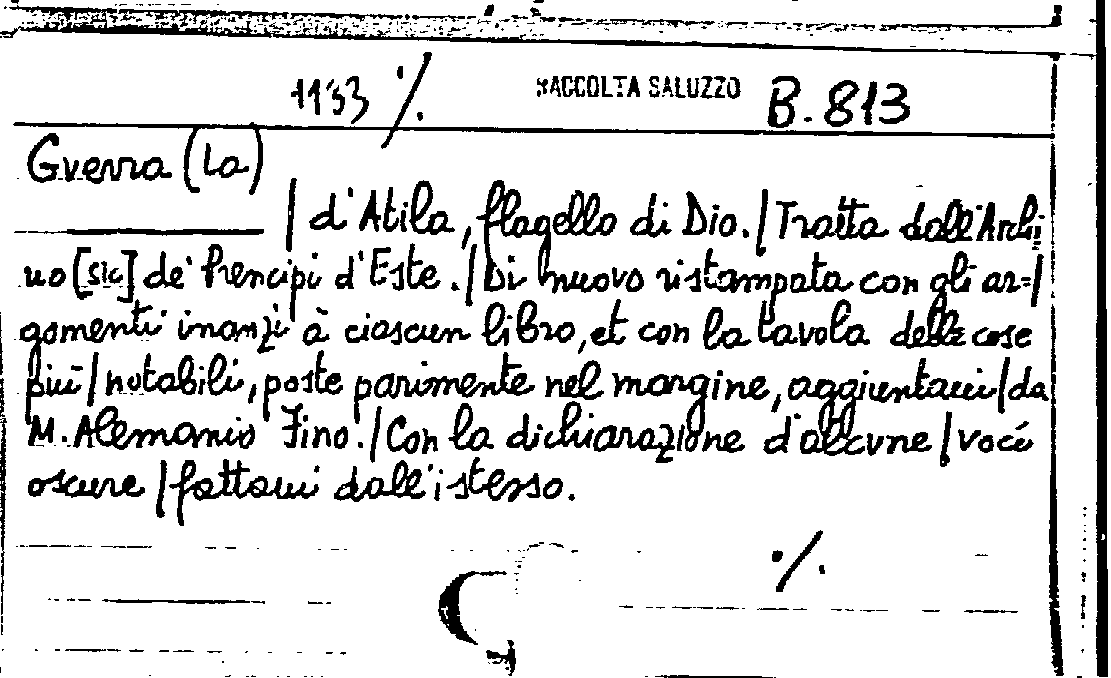 1133 ·/. RACCOLTA SALUZZO B. 813
Gverra (La)
| d'Atila, flagello di Dio. | Tratta dall'Archi
uo [sic] de' Prencipi d'Este. | Di nuovo ristampata con gli ar= |
gomenti inanzi à ciascun libro, et con la tavola delle cose
più | notabili, poste parimente nel margine, aggiuntaui | da
M. Alemanio Fino. | Con la dichiarazione d'alcvne | voci
oscure | fattaui dall'istesso.
·/.